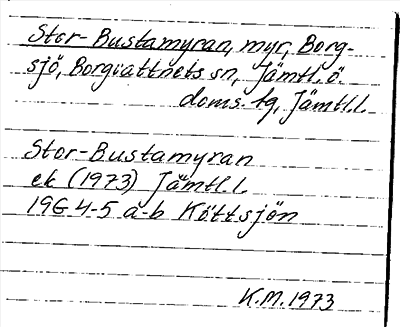 Stor-Bustamyran, myr, Borg-
sjö, Borgvattnets sn, Jämtl. ö.
doms. tg, Jämtl. l.
Stor-Bustamyran
ek (1973) Jämtl. l.
19G 4-5 a-b Köttsjön
K.M. 1973